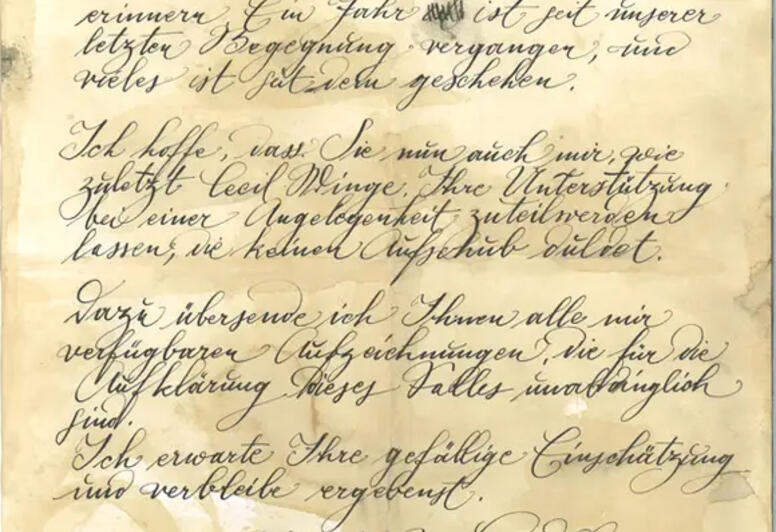 erinnern. Ein Jahr ist seit unserer
letzten Begegnung vergangen, und
vieles ist seit dem geschehen.
Ich hoffe, dass Sie nun auch mir, wie
zuletzt Cecil Winge, Ihre Unterstützung
bei einer Angelegenheit zuteilwerden
lassen, die keinen Aufschub duldet.
Dazu übersende ich Ihnen alle mir
verfügbaren Aufzeichnungen, die für die
Aufklärung dieses Falles unabdinglich
sind.
Ich erwarte Ihre gefällige Einschätzung
und verbleibe ergebenst.